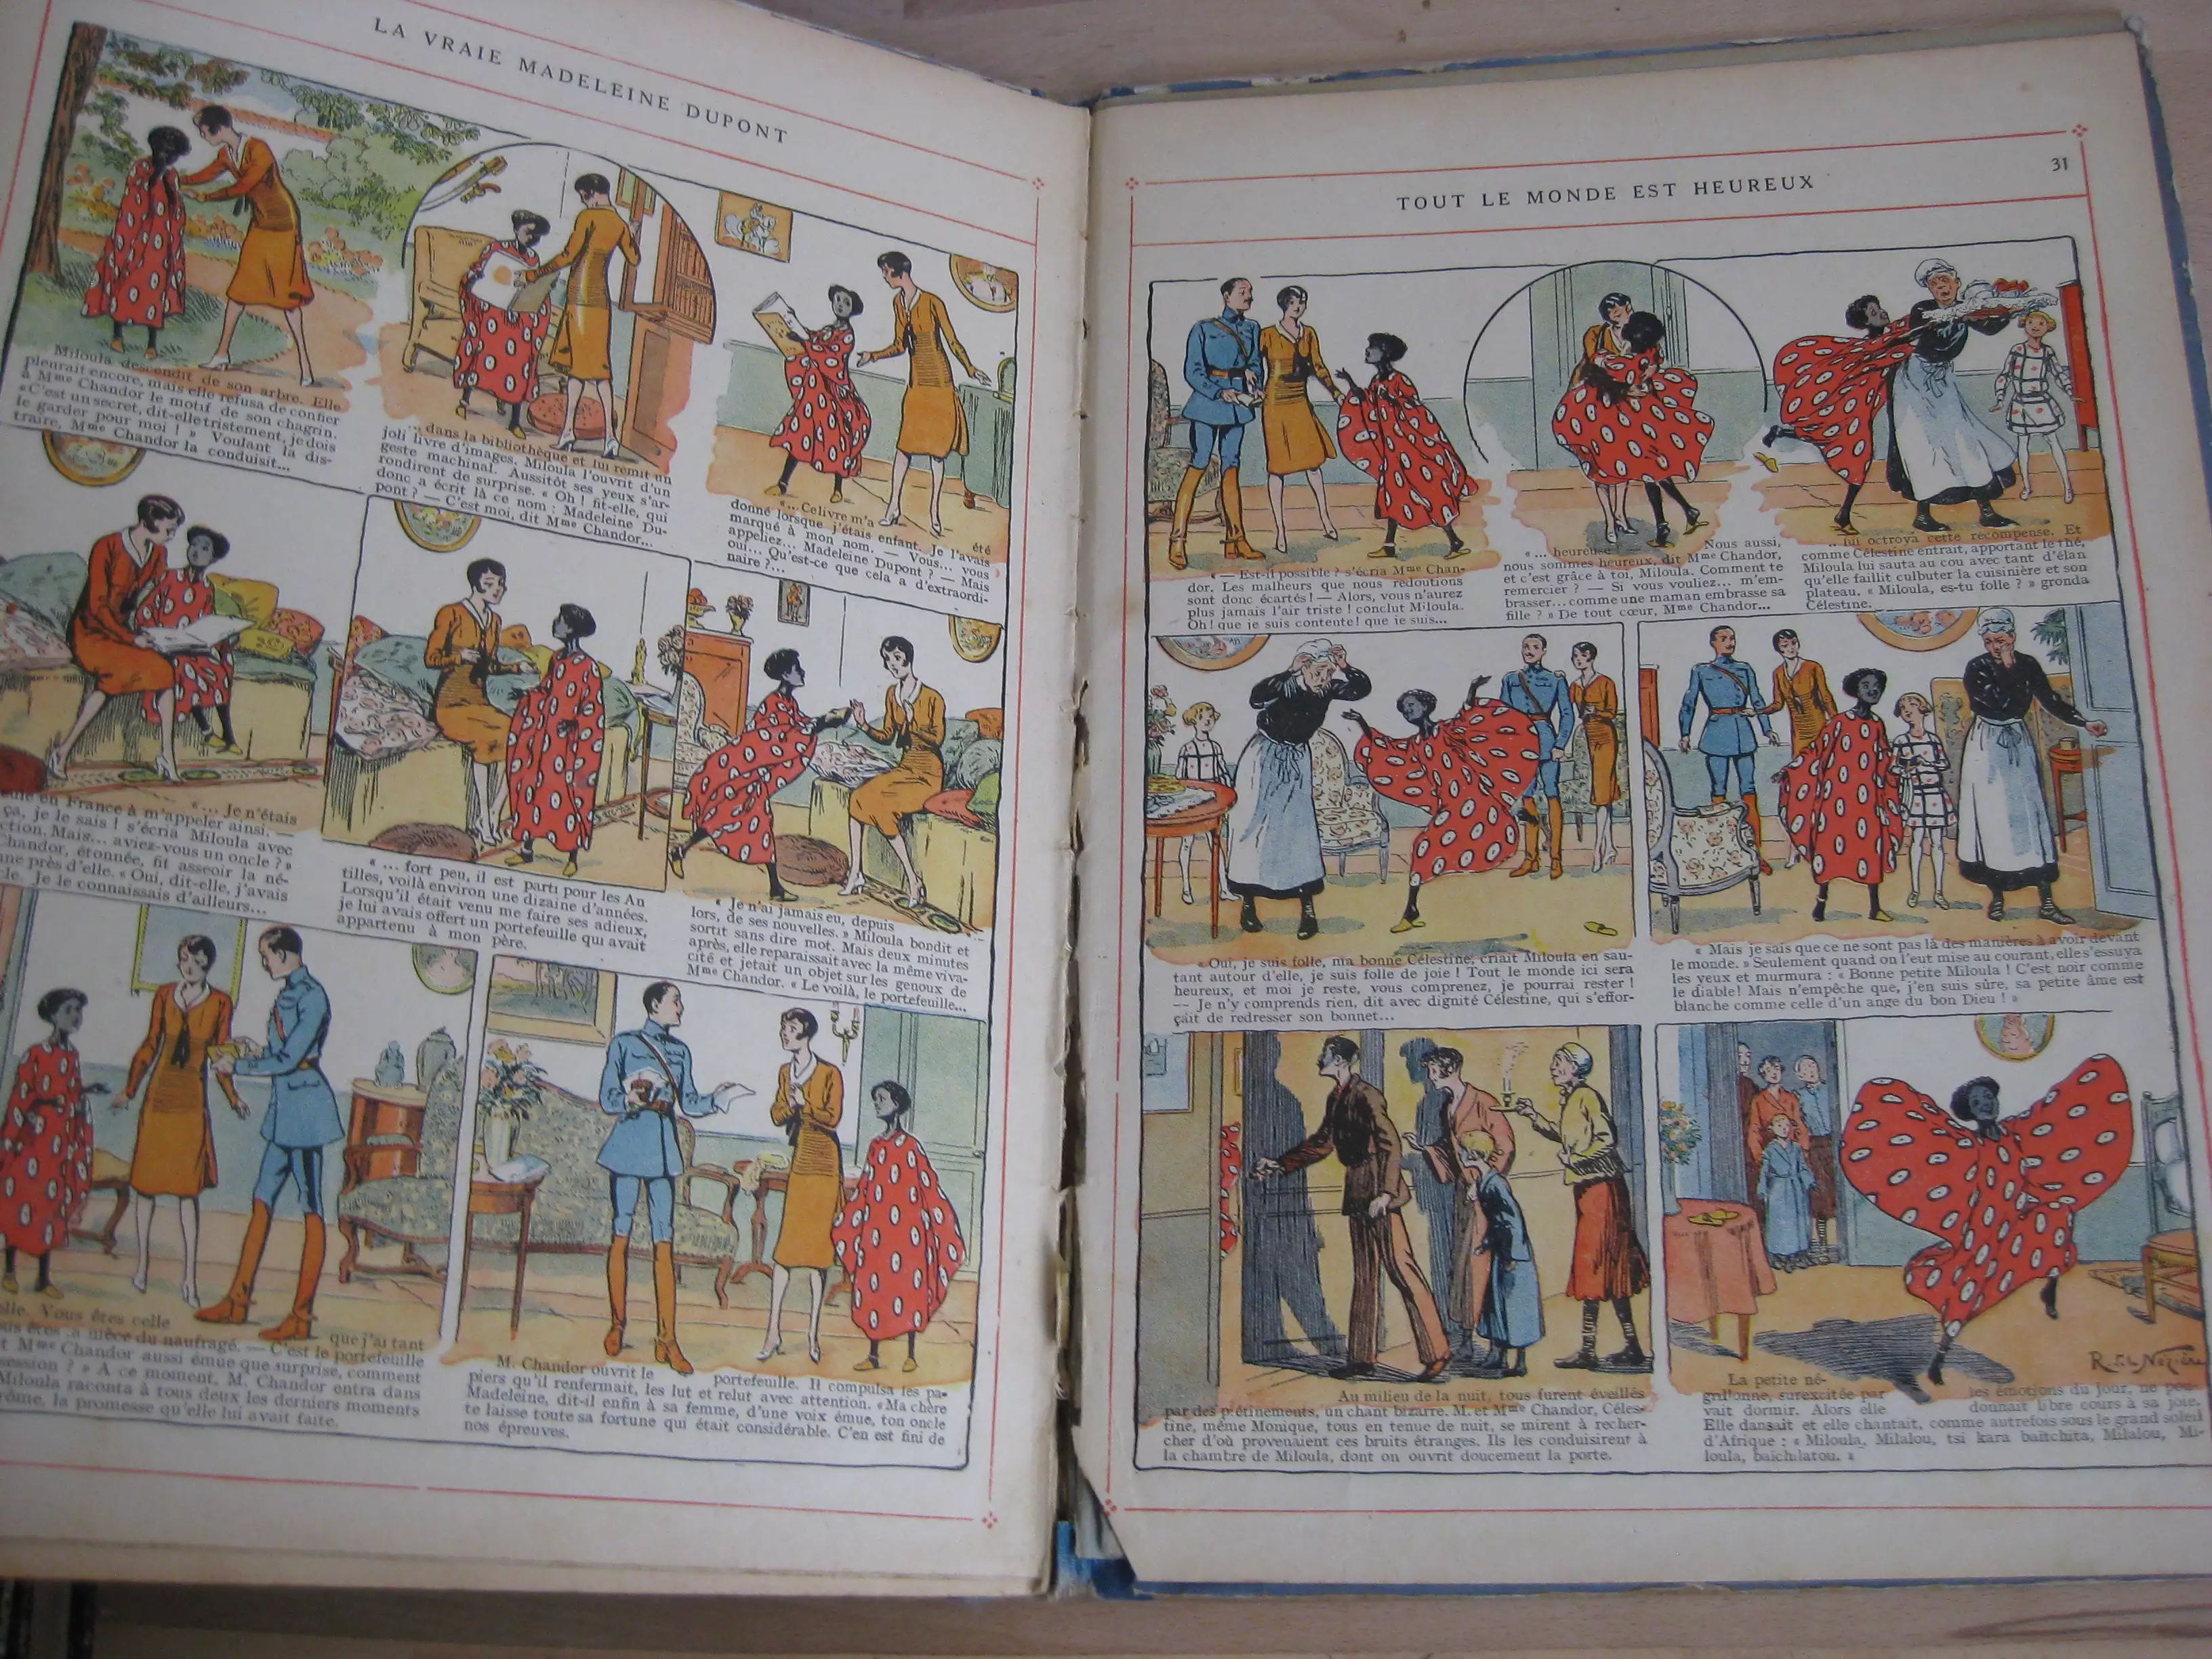 LA VRAIE MADELEINE DUPONT
Miloula descendit de son arbre. Elle
pleurait encore, mais elle refusa de confier
à Mme Chandor le motif de son chagrin.
« C'est un secret, dit-elle tristement, je dois
le garder pour moi ! » Voulant la dis-
traire, Mme Chandor la conduisit...
... dans la bibliothèque et lui remit un
joli livre d'images. Miloula l'ouvrit d'un
geste machinal. Aussitôt ses yeux s'ar-
rondirent de surprise. « Oh ! fit-elle, qui
donc a écrit là ce nom : Madeleine Du-
pont ? — C'est moi, dit Mme Chandor...
«... Ce livre m'a été
donné lorsque j'étais enfant. Je l'avais
marqué à mon nom. — Vous... vous
appeliez... Madeleine Dupont ? — Mais
oui... Qu'est-ce que cela a d'extraordi-
naire ?...
«... Je n'étais
en France à m'appeler ainsi. —
ça, je le sais ! s'écria Miloula avec
Mais... aviez-vous un oncle ? »
Chandor, étonnée, fit asseoir la né-
près d'elle. « Oui, dit-elle, j'avais
Je le connaissais d'ailleurs...
« ... fort peu, il est parti pour les An
tilles, voilà environ une dizaine d'années.
Lorsqu'il était venu me faire ses adieux,
je lui avais offert un portefeuille qui avait
appartenu à mon père.
« Je n'ai jamais eu, depuis
lors, de ses nouvelles. » Miloula bondit et
sortit sans dire mot. Mais deux minutes
après, elle reparaissait avec la même viva-
cité et jetait un objet sur les genoux de
Mme Chandor. « Le voilà, le portefeuille...
Vous êtes celle que j'ai tant
êtes la nièce du naufragé. — C'est le portefeuille
Mme Chandor aussi émue que surprise, comment
? » A ce moment, M. Chandor entra dans
Miloula raconta à tous deux les derniers moments
la promesse qu'elle lui avait faite.
M. Chandor ouvrit le portefeuille. Il compulsa les pa-
piers qu'il renfermait, les lut et relut avec attention. « Ma chère
Madeleine, dit-il enfin à sa femme, d'une voix émue, ton oncle
te laisse toute sa fortune qui était considérable. C'en est fini de
nos épreuves.
31
TOUT LE MONDE EST HEUREUX
« — Est-il possible ? s'écria Mme Chan-
dor. Les malheurs que nous redoutions
sont donc écartés ! — Alors, vous n'aurez
plus jamais l'air triste ! conclut Miloula.
Oh ! que je suis contente ! que je suis...
« ... heureuse ! — Nous aussi,
nous sommes heureux, dit Mme Chandor,
et c'est grâce à toi, Miloula. Comment te
remercier ? — Si vous vouliez... m'em-
brasser... comme une maman embrasse sa
fille ? » De tout cœur, Mme Chandor...
... lui octroya cette récompense. Et
comme Célestine entrait, apportant le thé,
Miloula lui sauta au cou avec tant d'élan
qu'elle faillit culbuter la cuisinière et son
plateau. « Miloula, es-tu folle ? » gronda
Célestine.
« Oui, je suis folle, ma bonne Célestine, criait Miloula en sau-
tant autour d'elle, je suis folle de joie ! Tout le monde ici sera
heureux, et moi je reste, vous comprenez, je pourrai rester !
— Je n'y comprends rien, dit avec dignité Célestine, qui s'effor-
çait de redresser son bonnet...
« Mais je sais que ce ne sont pas là des manières à avoir devant
le monde. » Seulement quand on l'eut mise au courant, elle s'essuya
les yeux et murmura : « Bonne petite Miloula ! C'est noir comme
le diable ! Mais n'empêche que, j'en suis sûre, sa petite âme est
blanche comme celle d'un ange du bon Dieu ! »
Au milieu de la nuit, tous furent éveillés
par des piétinements, un chant bizarre. M. et Mme Chandor, Céles-
tine, même Monique, tous en tenue de nuit, se mirent à recher-
cher d'où provenaient ces bruits étranges. Ils les conduisirent à
la chambre de Miloula, dont on ouvrit doucement la porte.
La petite né-
grillonne, surexcitée par les émotions du jour, ne pou-
vait dormir. Alors elle donnait libre cours à sa joie.
Elle dansait et elle chantait, comme autrefois sous le grand soleil
d'Afrique : « Miloula, Milalou, tsi kara baïtchita, Milalou, Mi-
loula, baïchilatou. »